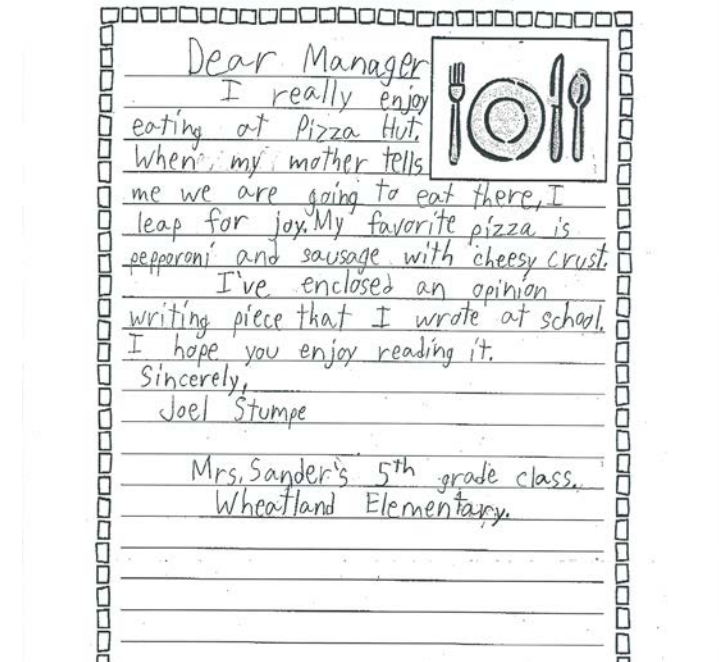 Dear Manager
I really enjoy
eating at Pizza Hut.
When my mother tells
me we are going to eat there, I
leap for joy. My favorite pizza is
pepporoni and sausage with cheesy crust.
I've enclosed an opinion
writing piece that I wrote at school.
I hope you enjoy reading it.
Sincerely,
Joel Stumpe
Mrs. Sander's 5th grade class.
Wheatland Elementary.